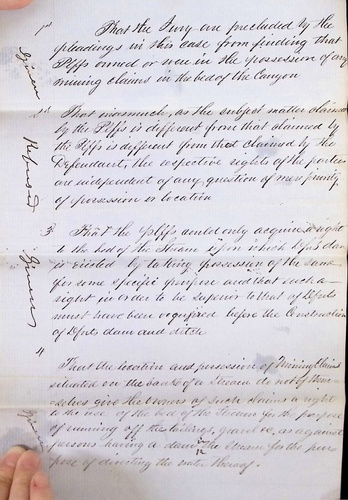 1st That the Jury are precluded by the
pleadings in this case from finding that
Plffs owned or were in the possession of any
mining claims in the bed of the Canyon
Given
2d That inasmuch, as the subject matter claimed
by the Plffs is different from that claimed by
the Plffs is different from that claimed by the
Defendant, the respective rights of the parties
are independent of any question of mere priority
of possession or location
Refused
3 That the Plffs could only acquire a right
to the bed of the Stream upon which Dfts dam
is erected by taking possession of the same
for some specific purpose and that such a
right in order to be superior to that of Dfts
must have been acquired before the Construction
of Dfts dam and ditch
Given
4
That the location and possession of Mining Claims
situated on the bank of a Stream do not of them
selves give the Owners of such claims a right
to the use of the bed of the Stream for the purpose
of running off the tailings, gravel &c. as against
persons having a dam in the Stream for the pur
pose of directing the water thereof.
Given